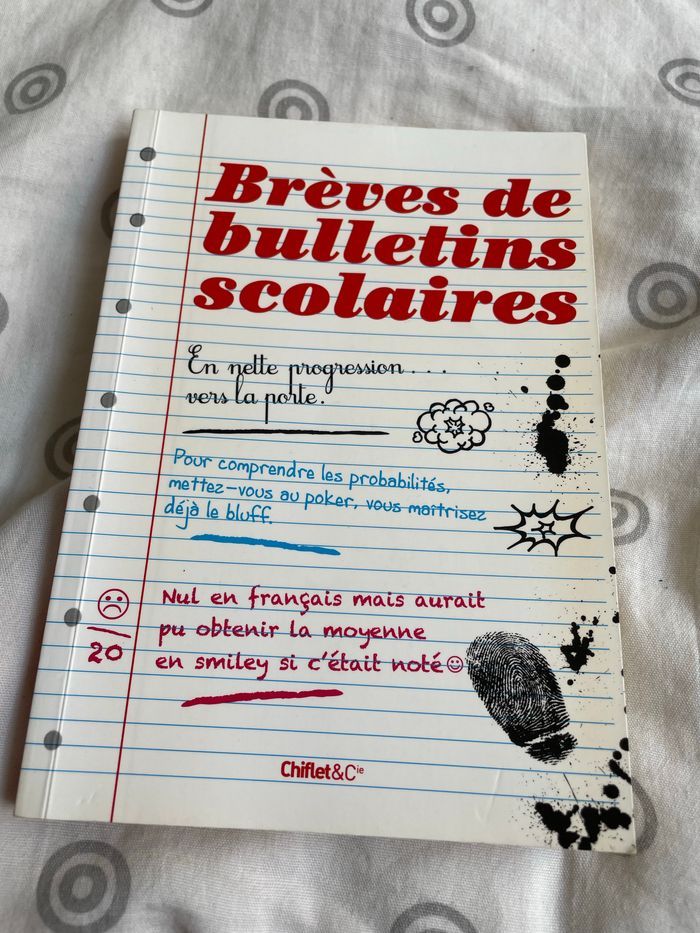 Brèves de
bulletins
scolaires
En nette progression...
vers la porte.
Pour comprendre les probabilités,
mettez-vous au poker, vous maîtrisez
déjà le bluff.
20
Nul en français mais aurait
pu obtenir la moyenne
en smiley si c'était noté☺
Chiflet&Cie